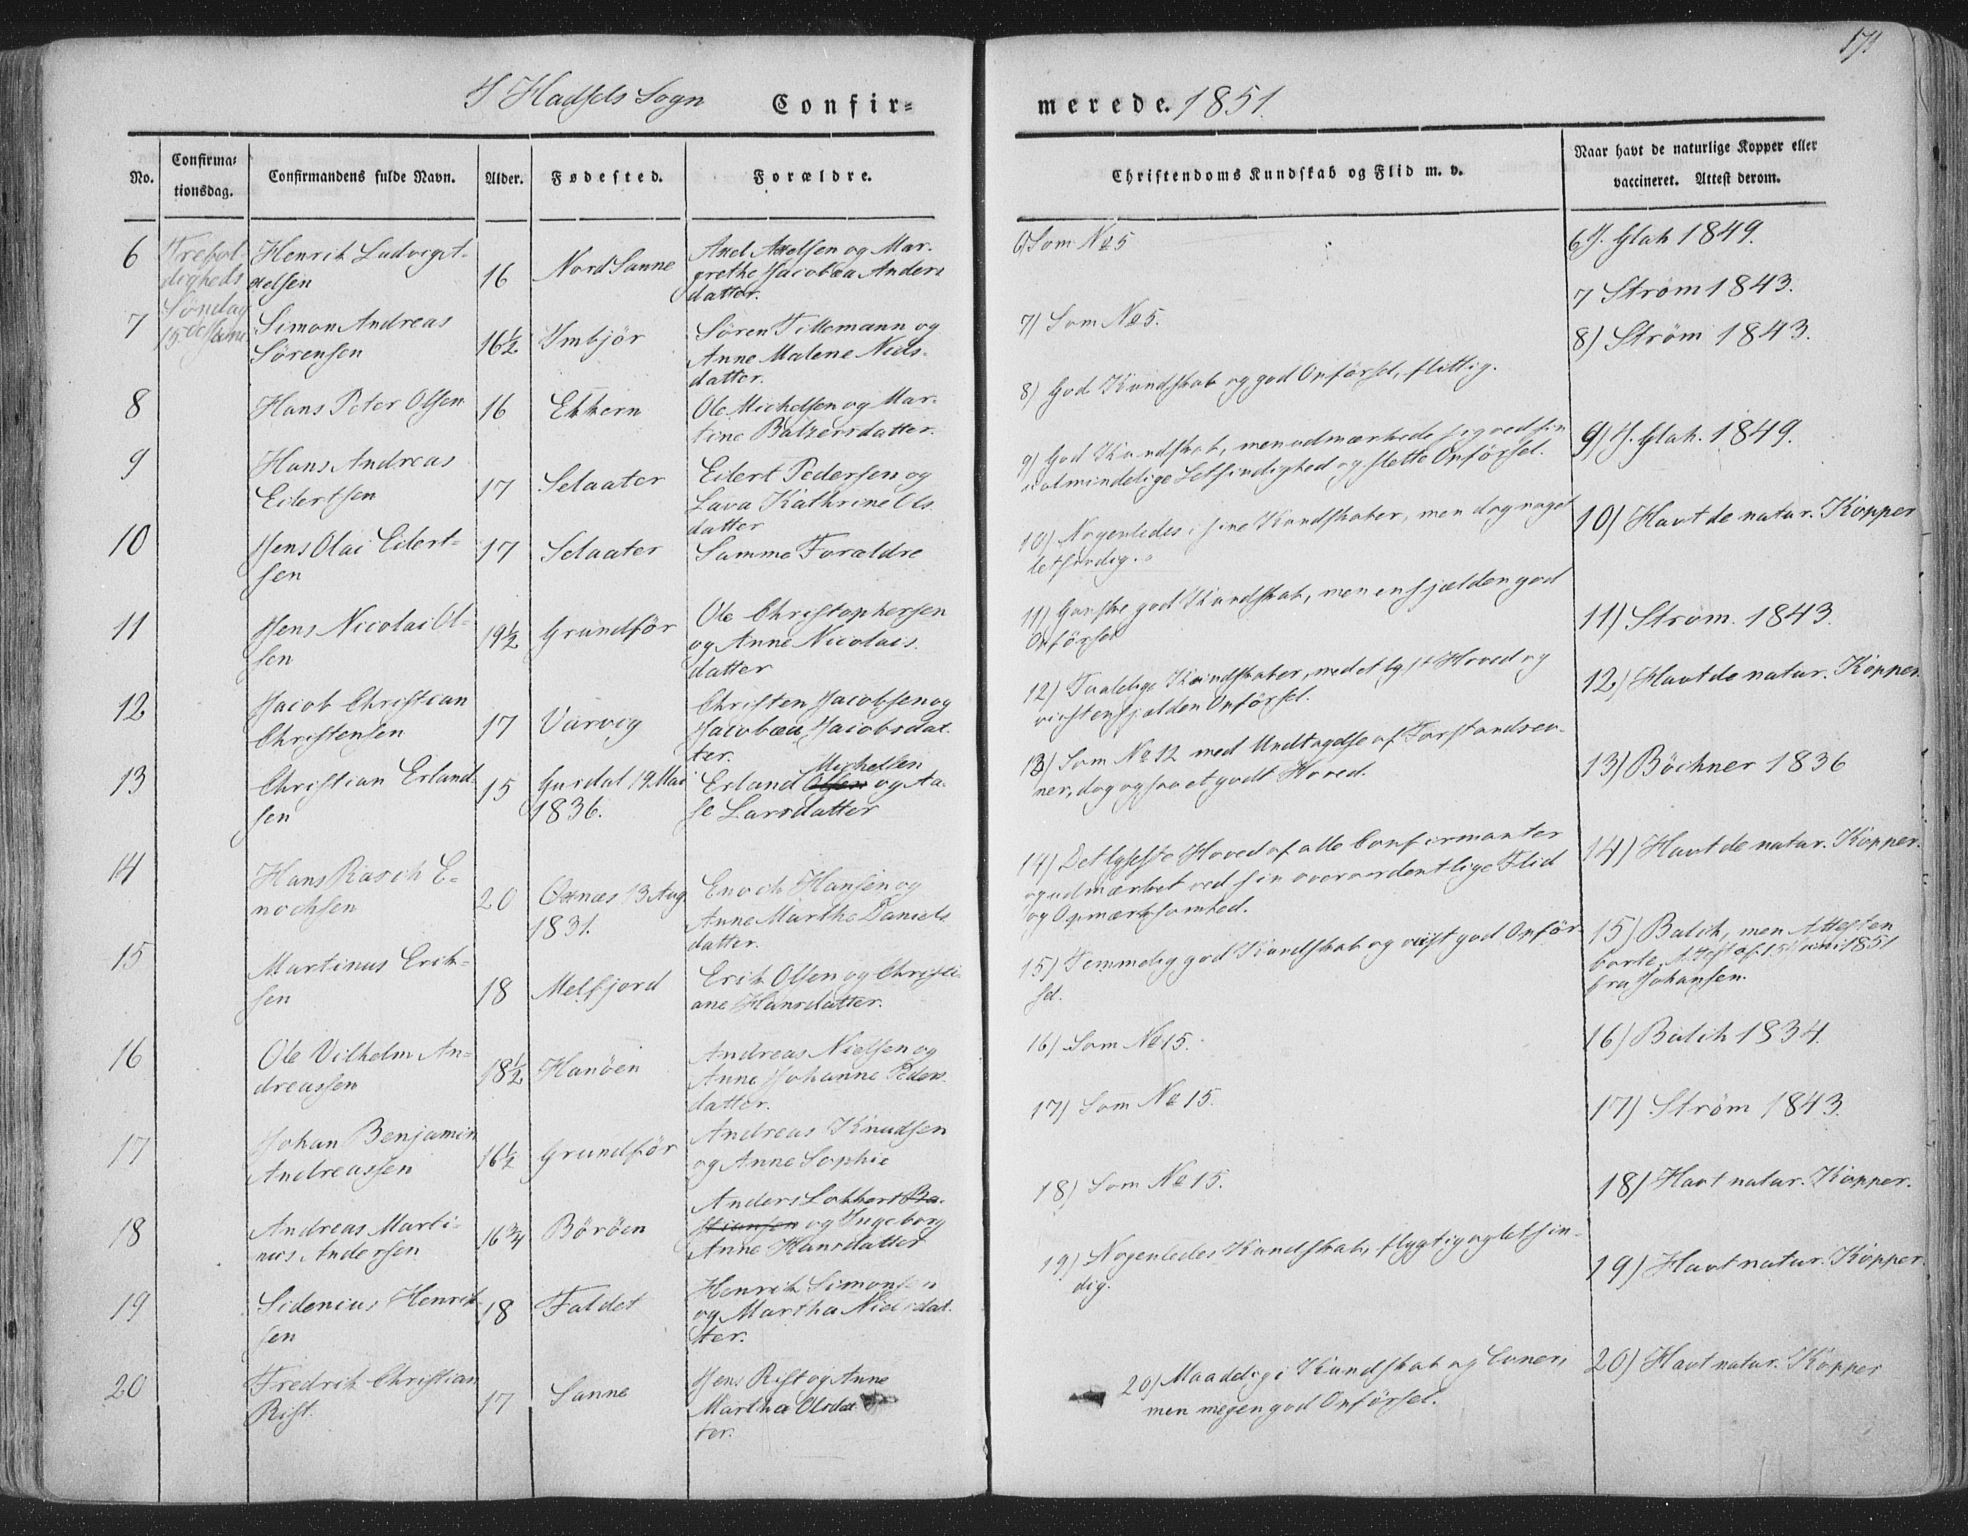 171
I Hadsels Sogn Confir-
merede. 1851.
No. Confirma-
tionsdag. Confirmandens fulde Navn. Alder. Fødested. Forældre.
Christendoms Kundskab og Flid m. v. Naar havt de naturlige Kopper eller
vaccineret. Attest derom.
6 Trefol-
digheds
Søndag
15de Juni
Henrik Ludvig A-
xelsen 16 Nord Sanne Axel Axelsen og Mar-
grethe Jacobæa Anders
datter.
7 Simon Andreas
Sörensen 16½ Imbjör Sören Tillemann og
Anne Malene Niels-
datter.
8 Hans Peter Olsen 16 Ekkern Ole Michelsen og Mar-
tine Balzersdatter.
9 Hans Andreas
Eilertsen 17 Selaater Eilert Pedersen og
Lava Kathrine Ols
datter
10 Jens Olai Eilert-
sen 17 Selaater Samme Forældre
11 Jens Nicolai Ol-
sen 19½ Grundför Ole Christophersen
og Anne Nicolais.
datter
12 Jacob Christian
Christensen 17 Varvig Christen Jacobsen og
Jacobæa Jacobsdat-
ter.
13 Christian Erland
sen 15 Gurdal 19 Mai
1836. Erland Olsen Michelsen og Aa-
se Larsdatter
14 Hans Rasch E-
nochsen 20 Oxnæs 13 Aug
1831. Enoch Hansen og
Anne Marthe Daniels
datter.
15 Martinus Erik-
sen 18 Melfjord Erik Olsen og Christi-
ane Hansdatter.
16 Ole Vilhelm An-
dreassen 18½ Hanöen Andreas Nielsen og
Anne Johanne Peders-
datter.
17 Johan Benjamin
Andreassen 16½ Grundför Andreas Knudsen
og Anne Sophie
18 Andreas Marti-
nus Andersen 16¾ Böröen Anders Lokkert Ba-
stiansen og Ingeborg
Anne Hansdatter
19 Sidenius Henrik-
sen 18 Faldet Henrik Simonsen
og Martha Nielsdat-
ter.
20 Fredrik Christian
Rist. 17 Sanne Jens Rist og Anne
Martha Olsdat
ter.
6) Som No 5
7) Som No 5.
8) God Kundskab og god Opförsel, flittig.
9) God Kundskab, men udmærkede sig ved sin
ualmindelige Letsindighed og slette Opförsel.
10) Nogenledes i sine Kundskaber, men dog noget
letsindig.
11) Ganske god Kundskab, men ensfjælden god
Opförsel
12) Taalelige Kundskaber, med et lyst Hoved og
viist ensfjælden Opförsel.
13) Som No 12 med Undtagelse af Forstandsev-
ner, dog ogsaa et godt Hoved.
14) Det lyseste Hoved af alle Confirmanter
og udmærket ved sin overordentlige Flid
og Opmærksomhed.
15) Temmelig god Kundskab og viist god Opför-
sel.
16) Som No 15.
17) Som No 15.
18) Som No 15.
19) Nogenledes Kundskab, flygtig og letsin-
dig.
20) Maadelig i Kundskab og Evner,
men megen god Opförsel.
6 J. Glah 1849.
7 Ström 1843.
8) Ström 1843.
9) J. Glah. 1849.
10) Havt de natur. Kopper
11) Ström. 1843.
12) Havt de natur. Kopper.
13) Böchner 1836
14) Havt de natur. Kopper.
15) Balch, men Attesten
borte. Attest af 15 Juni 1851
fra Johansen.
16) Balch 1834.
17) Ström 1843.
18) Havt natur. Kopper.
19) Havt natur. Kopper.
20) Havt natur. Kopper